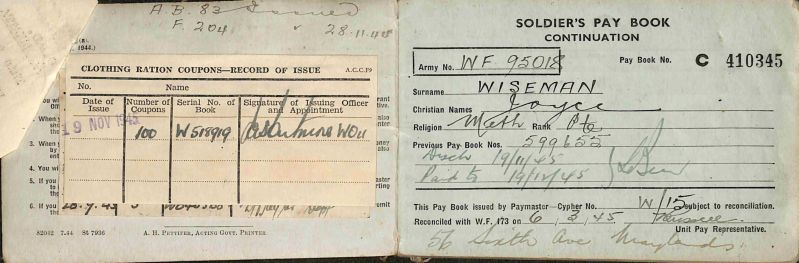 A.B. 83 Issued
F. 204 28.11.44
1944.)
CLOTHING RATION COUPONS—RECORD OF ISSUE A.C.C.F9
No. Name
Date of Issue Number of Coupons Serial No. of Book Signature of Issuing Officer and Appointment
19 NOV 1945 100 W518919
5. If you
6. If you
82042 7.44 St 7936 A. H. PETTIFER, ACTING GOVT. PRINTER.
SOLDIER'S PAY BOOK
CONTINUATION
Army No. WF 95018 Pay Book No. C 410345
Surname WISEMAN
Christian Names Joyce
Religion Meth Rank Pte
Previous Pay Book Nos. 599655
Disch 19/11/45
Paid to 19/12/45
This Pay Book issued by Paymaster—Cypher No. W/15 subject to reconciliation.
Reconciled with W.F. 173 on 6/3/45
Unit Pay Representative.
56 Sixth Ave Maylands